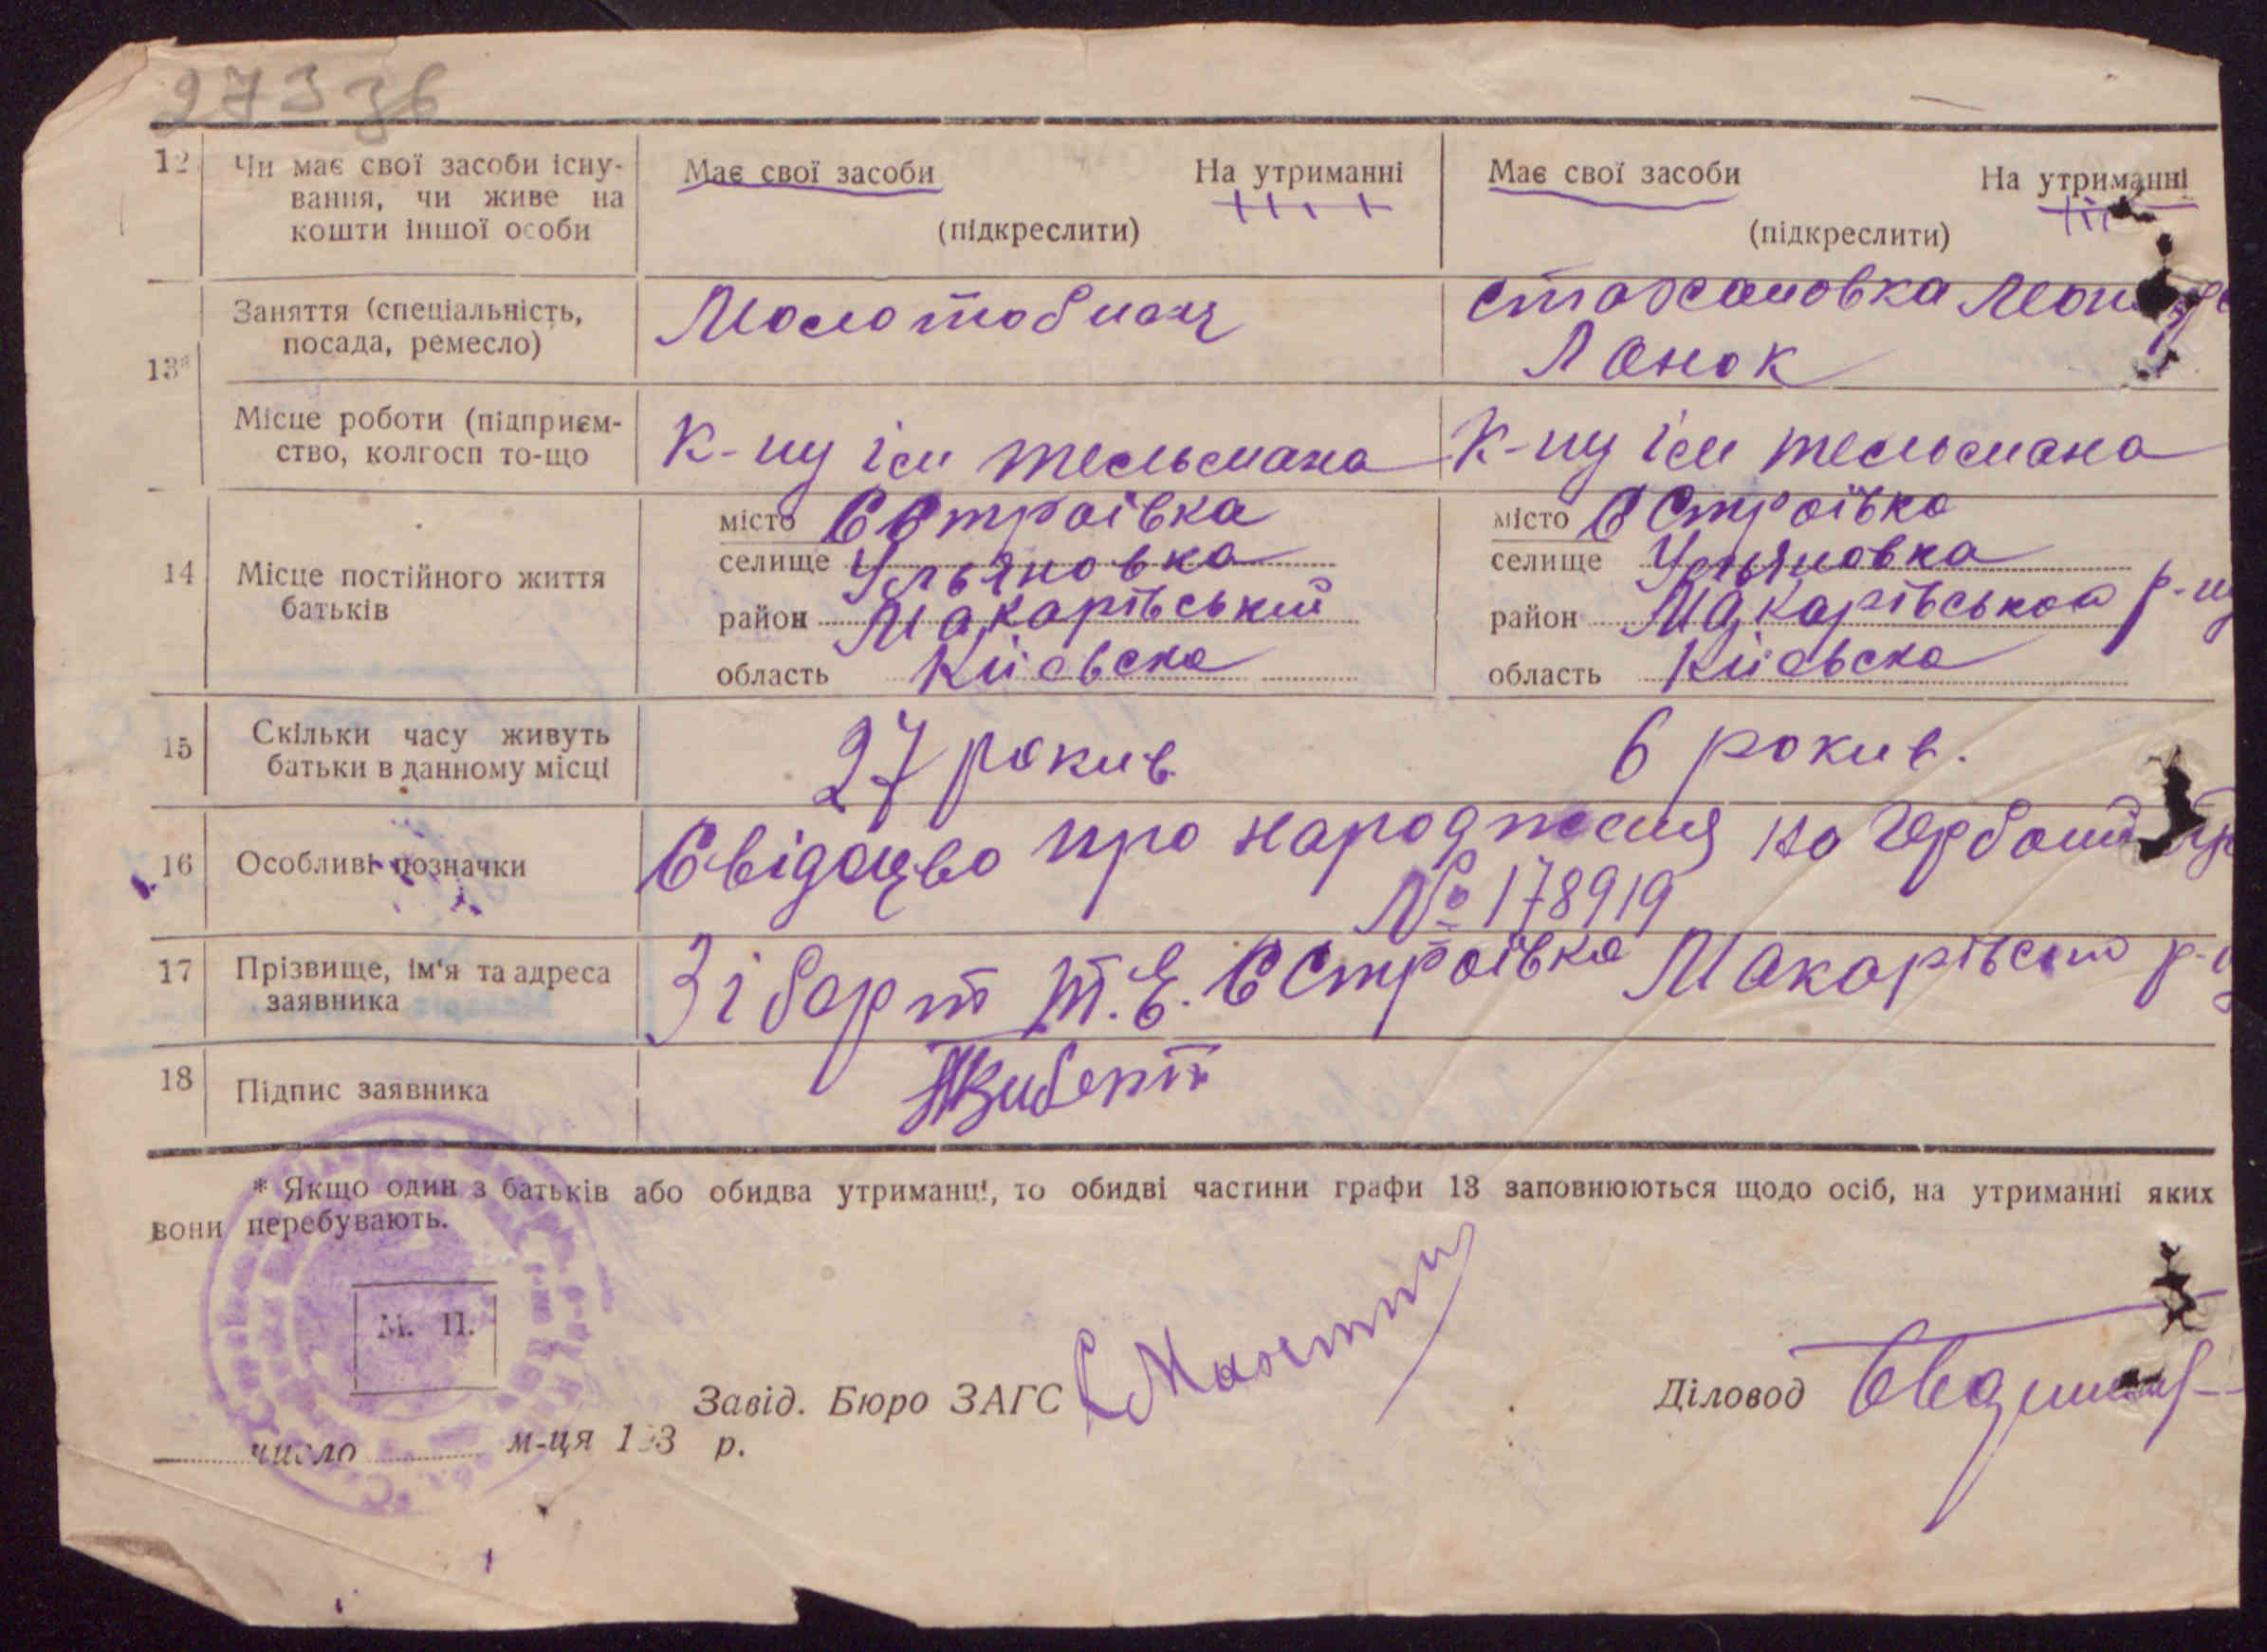 27336
12 Чи має свої засоби існу-
вання, чи живе на
кошти іншої особи
Має свої засоби На утриманні
(підкреслити)
Має свої засоби На утриманні
(підкреслити)
13*
Заняття (спеціальність,
посада, ремесло)
Молотобиєц
стахановка
Ланок
Місце роботи (підприєм-
ство, колгосп то-що
К-пу ім тельмана
К-пу ім тельмана
14 Місце постійного життя
батьків
місто С Строівка
селище Ульяновка
район Макарівський
область Киівска
місто С Строівка
селище Ульяновка
район Макарівськой р-ну
область Киівска
15 Скільки часу живуть
батьки в данному місці
27 рокив
6 рокив.
16 Особливі позначки
Свідоцво про народження на
№ 178919
17 Прізвище, ім'я та адреса
заявника
Зіберт Т. Є. С Строівка Макарівськ р-ну
18 Підпис заявника
Зиберт
* Якщо один з батьків або обидва утриманці, то обидві частини графи 13 заповнюються щодо осіб, на утриманні яких
вони перебувають.
М. П.
Завід. Бюро ЗАГС
Діловод
число м-ця 193 р.